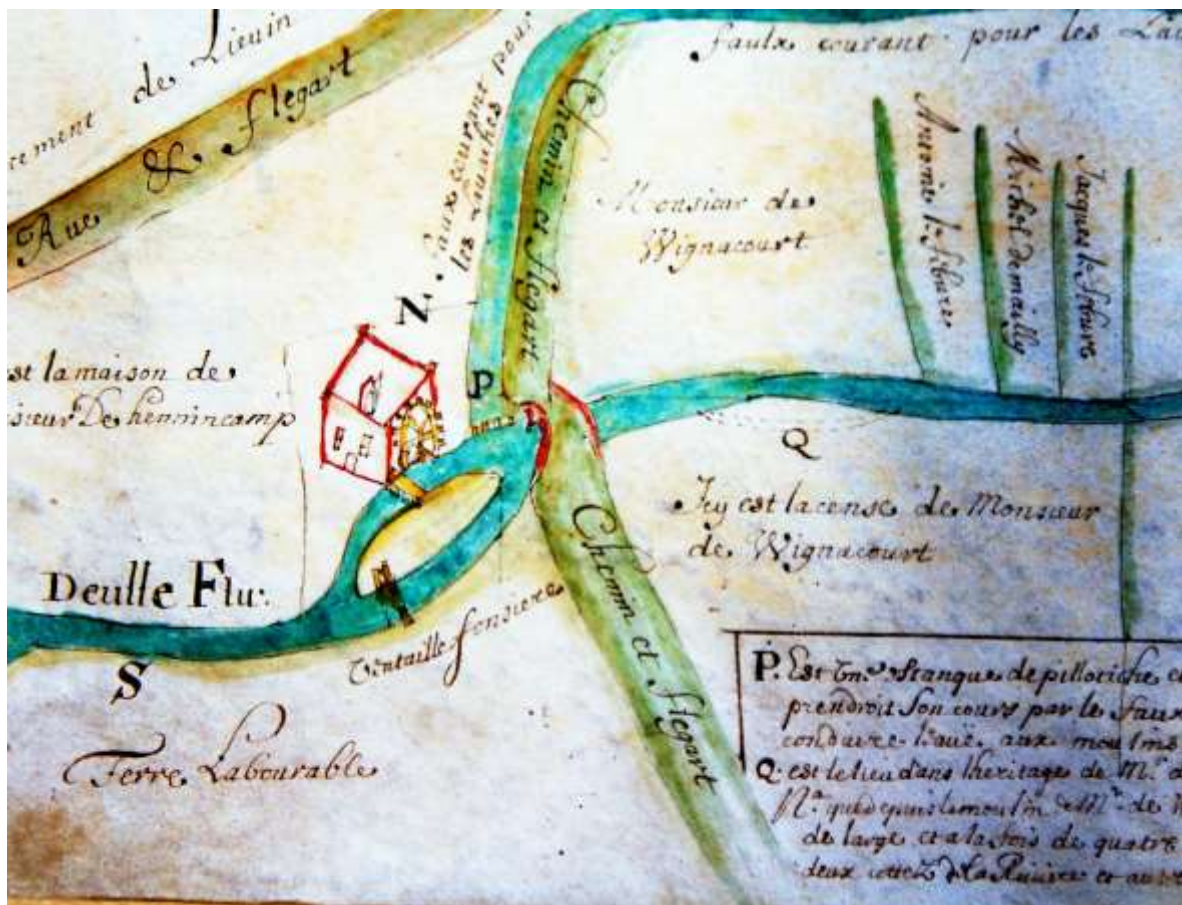 cement de Lieuin
Rue & Flegart
faulx courant pour
les Lauches
faulx courant pour les Lau
Chemin et flegart
Monsieur de
Wignacourt
Antoine le febure
Michel demailly
Jacques le febure
N.
P
Q
est la maison de
sieur De hennincamp
Icy est lacense de Monsieur
de Wignacourt
Deulle Flu.
S
Ventaille fonsiere
Chemin et flegart
Terre Labourable
P. Est une Stanque de pilloriche
prendroit son cours par le faux
conduire leaue aux moulins
Q est le lieu dans lheritage de Mr. d
Na. que depuis le moulin de Mr. de
de large et a la fois de quatre
deux costez de la Riuiere et au